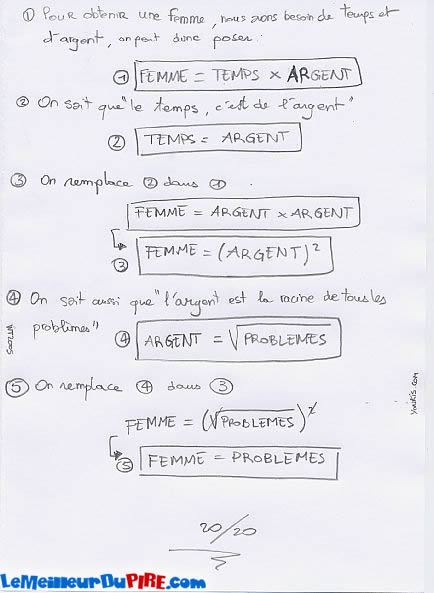 ① Pour obtenir une femme, nous avons besoin de temps et
d'argent, on peut donc poser :
① FEMME = TEMPS × ARGENT
② On sait que "le temps, c'est de l'argent"
② TEMPS = ARGENT
③ On remplace ② dans ①
FEMME = ARGENT × ARGENT
③ FEMME = (ARGENT)²
④ On sait aussi que "l'argent est la racine de tous les
problèmes"
④ ARGENT = √PROBLEMES
⑤ On remplace ④ dans ③
FEMME = (√PROBLEMES)²
⑤ FEMME = PROBLEMES
20/20
LeMeilleurDuPIRE.com